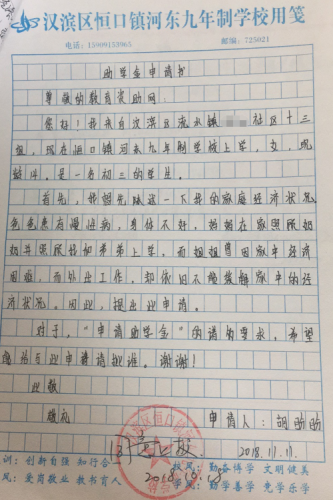 汉滨区恒口镇河东九年制学校用笺
电话:15909155965 邮编:725021
助学金申请书
尊敬的教育资助网:
您好!我来自汉滨区流水镇 社区十三
组,现在恒口镇河东九年制学校上学,女,现
龄14,是一名初三的学生。
首先,我想先陈述一下我的家庭经济状况
爸爸患有慢性病,身体不好,妈妈在家照顾奶
奶并照顾妹妹和弟弟上学,而姐姐曾因家中经济
困难,而外出工作,却依旧不能缓解家中的经
济状况。因此,提出此申请。
对于,“申请助学金”的请的要求,希望
能给与此申请请批准。谢谢!
此致
敬礼 申请人:胡
同意上报 2018.11.11.
2018.11.08
训:创新自强 知行合一 校风:勤奋博学 文明健美
风:爱岗敬业 教书育人 学风:勤学善学 竞学乐学